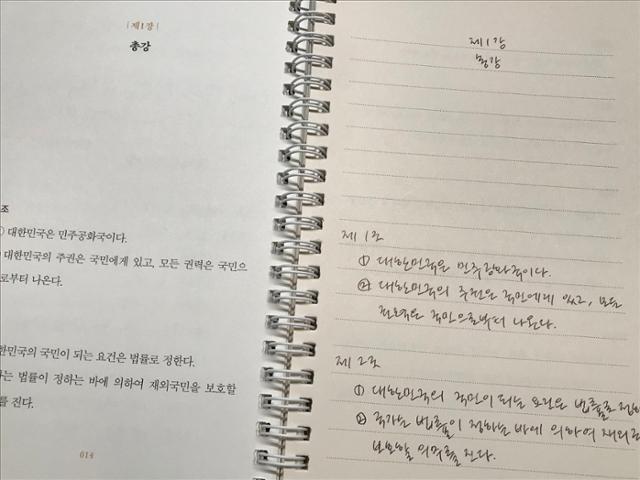 제1장
총강
조
① 대한민국은 민주공화국이다.
대한민국의 주권은 국민에게 있고, 모든 권력은 국민으
로부터 나온다.
한민국의 국민이 되는 요건은 법률로 정한다.
는 법률이 정하는 바에 의하여 재외국민을 보호할
를 진다.
014
제1장
총강
제1조
① 대한민국은 민주공화국이다.
② 대한민국의 주권은 국민에게 있고, 모든
권력은 국민으로부터 나온다.
제2조
① 대한민국의 국민이 되는 요건은 법률로 정
② 국가는 법률이 정하는 바에 의하여 재외국
보호할 의무를 진다.